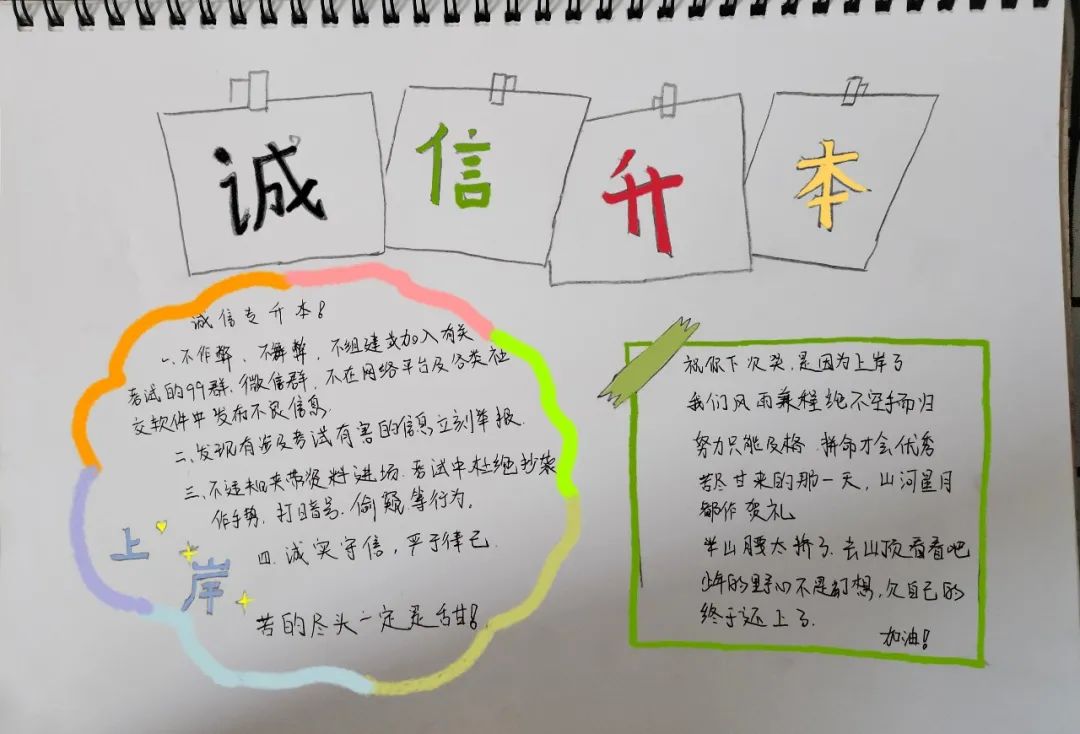 诚信升本
诚信专升本!
一.不作弊、不舞弊、不组建或加入有关
考试的QQ群.微信群.不在网络平台及各类社
交软件中发布不良信息.
二、发现有涉及考试有害的信息立刻举报.
三、不违规夹带资料进场.考试中杜绝抄袭
作手势.打暗号.偷窥等行为.
四.诚实守信,严于律己.
苦的尽头一定是甜!
上岸
祝你下次哭.是因为上岸了
我们风雨兼程绝不空手而归
努力只能及格.拼命才会优秀
苦尽甘来的那一天,山河星月
都作贺礼
半山腰太挤了.去山顶看看吧
少年的野心不是幻想,欠自己的
终于还上了.
加油!